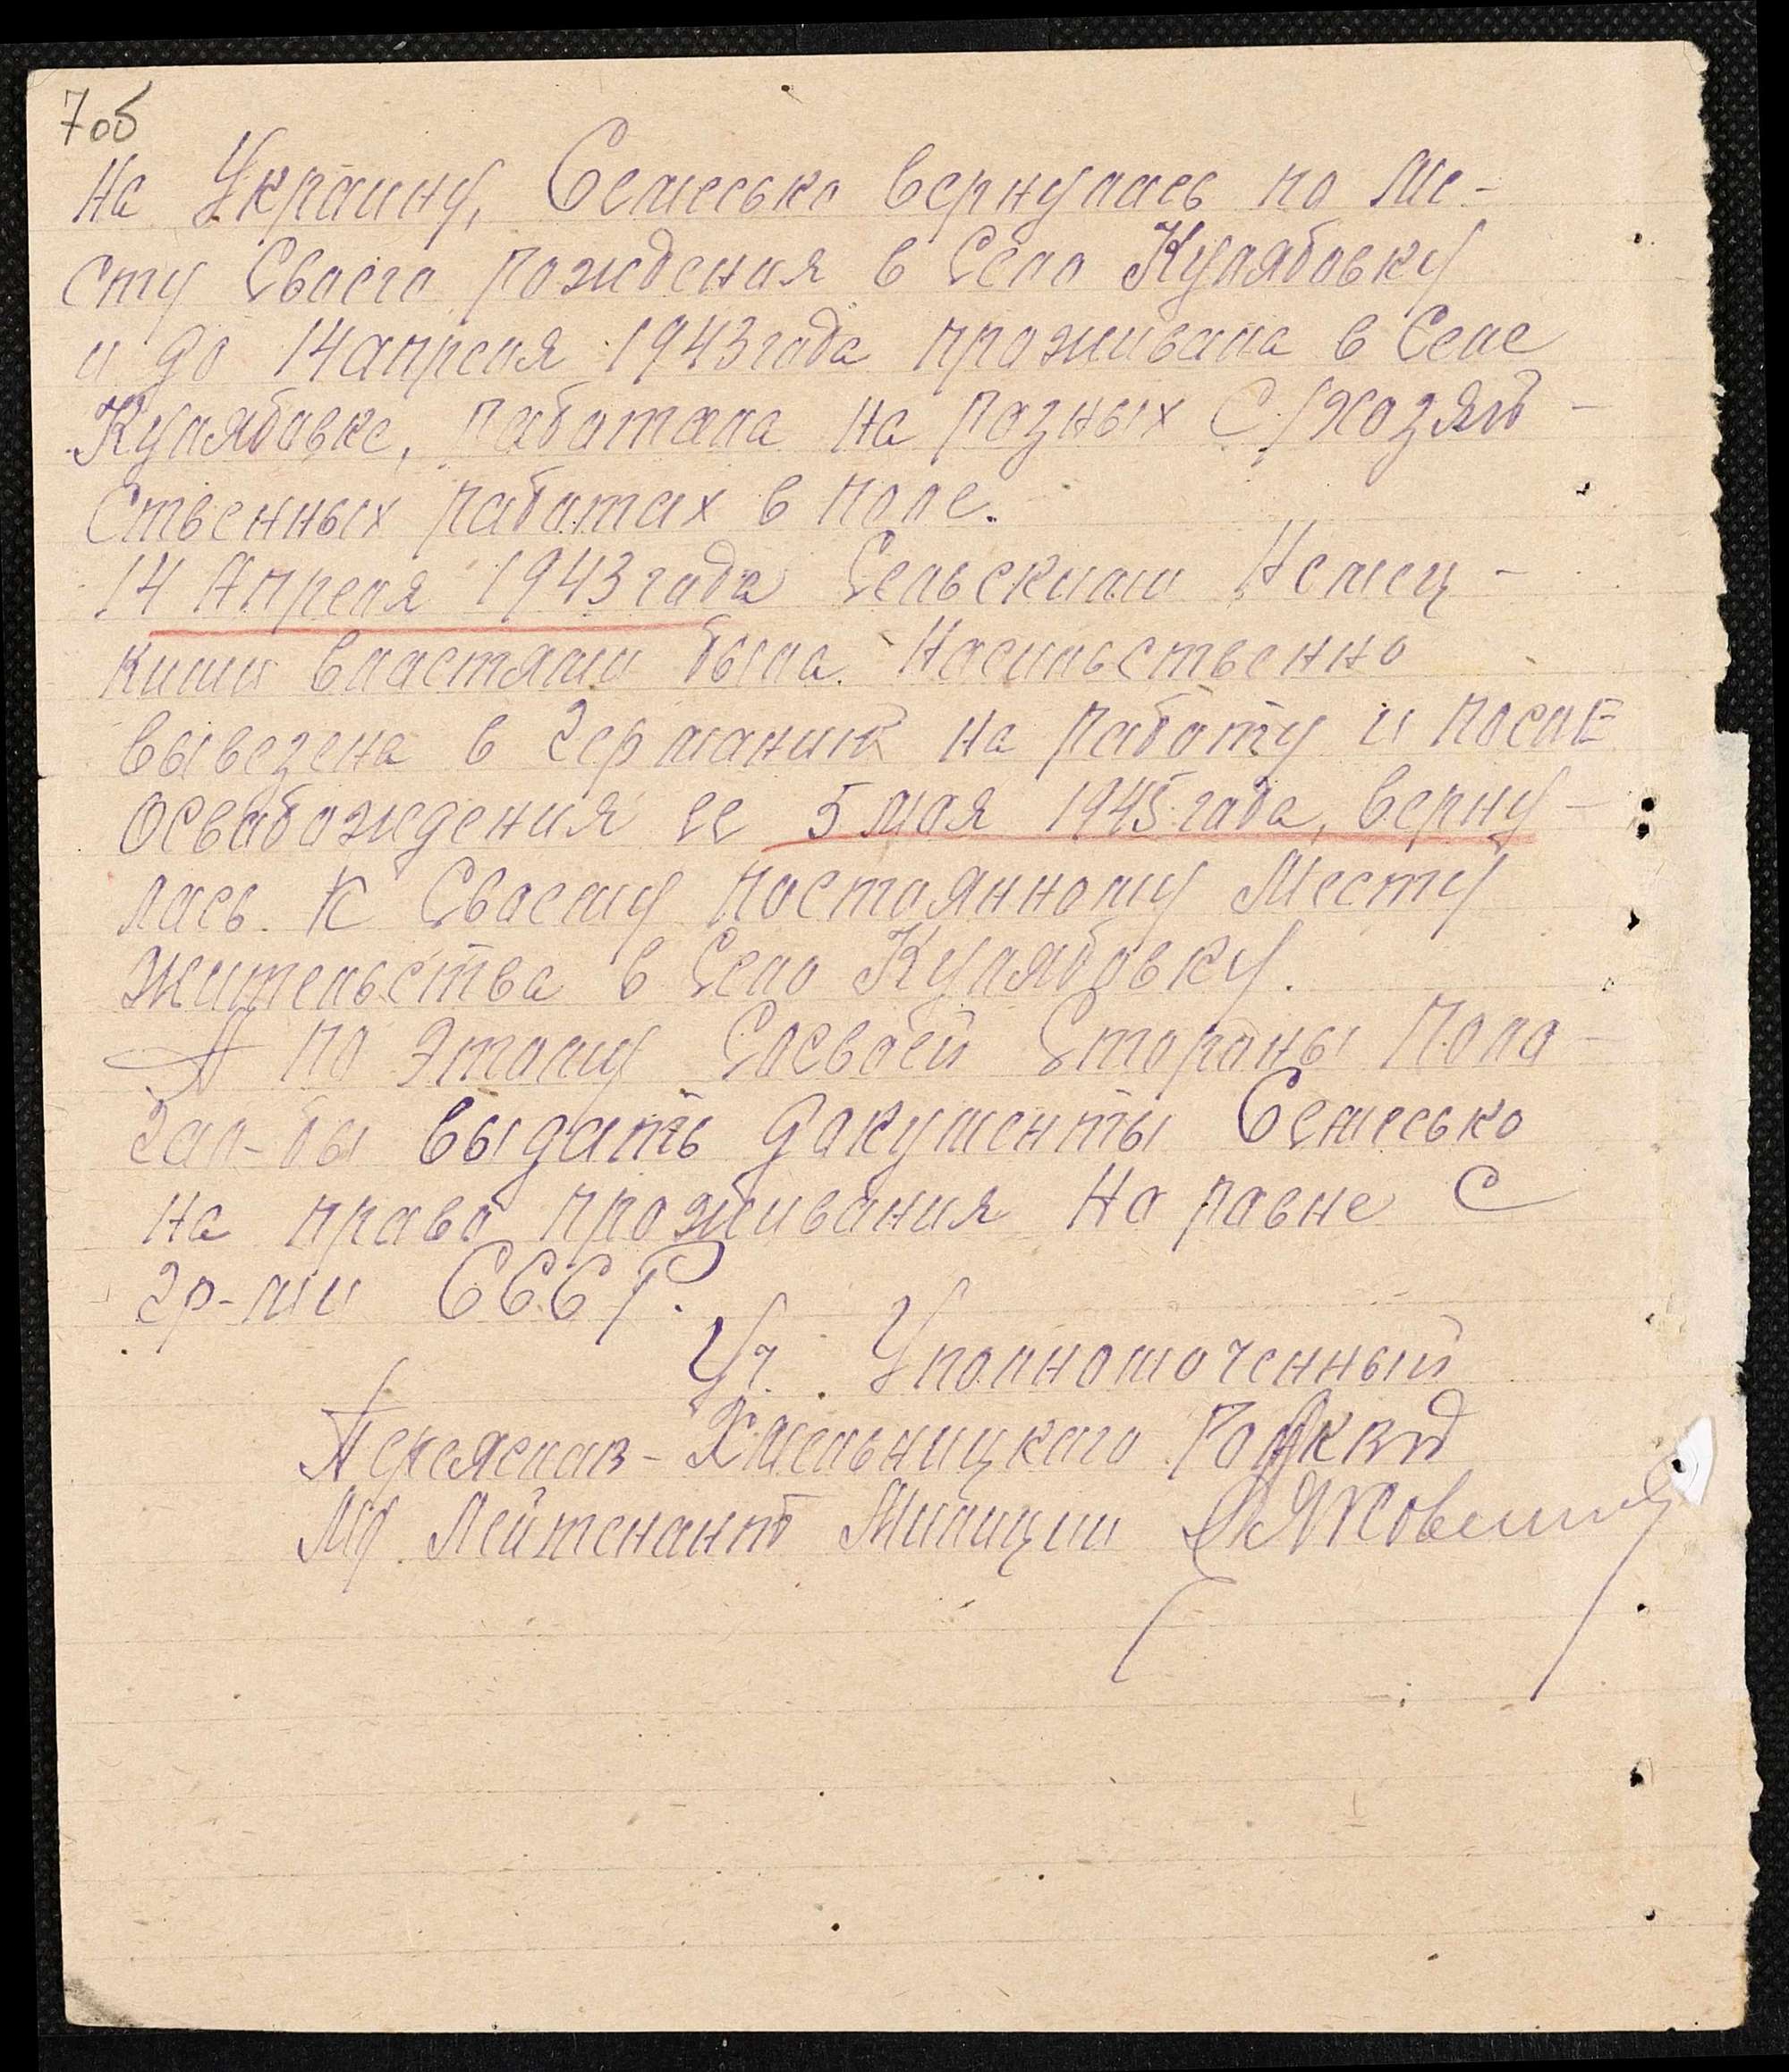 7об
На Украину, Семесько вернулась по ме-
сту Своего рождения в Село Кулябовку
и до 14 апреля 1943 года проживала в Селе
Кулябовке, работала на разных С/хозяй-
ственных работах в поле.
14 Апреля 1943 года Сельскими Немец-
кими властями была Насильственно
вывезена в Германию на работу и после
освабождения ее 5 мая 1945 года, верну-
лась к Своему постоянному Месту
жительства в Село Кулябовку.
А по этому Сосвоей Стороны Пола-
гал-бы выдать документы Семесько
на право проживания На равне С
гр-ми СССР.
Уч. Уполномоченный
Переяслав-Хмельницкого РоНКвд
Мл. Лейтенант Милиции